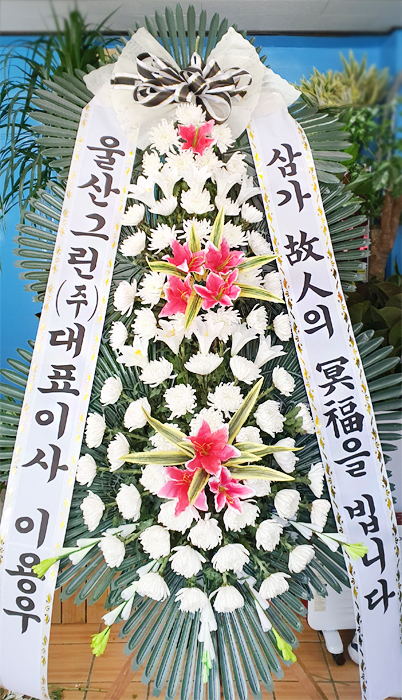 울산그린(주)대표이사 이용우
삼가 故人의 冥福을 빕니다